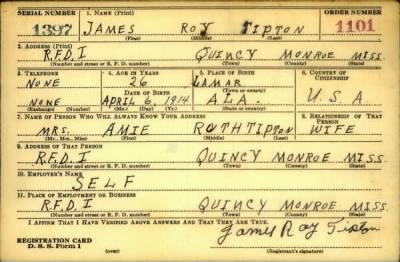 SERIAL NUMBER 1. NAME (Print) ORDER NUMBER
1397 JAMES ROY TIPTON 1101
(First) (Middle) (Last)
2. ADDRESS (Print)
R.F.D. I QUINCY MONROE MISS.
(Number and street or R. F. D. number) (Town) (County) (State)
3. TELEPHONE 4. AGE IN YEARS 5. PLACE OF BIRTH 6. COUNTRY OF CITIZENSHIP
NONE 26 LAMAR
(Town or county)
DATE OF BIRTH
NONE APRIL 6, 1914 ALA. U.S.A
(Exchange) (Number) (Mo.) (Day) (Yr.) (State or country)
7. NAME OF PERSON WHO WILL ALWAYS KNOW YOUR ADDRESS 8. RELATIONSHIP OF THAT PERSON
MRS. AMIE RUTH TIPTON WIFE
(Mr., Mrs., Miss) (First) (Middle) (Last)
9. ADDRESS OF THAT PERSON
R.F.D. I QUINCY MONROE MISS.
(Number and street or R. F. D. number) (Town) (County) (State)
10. EMPLOYER'S NAME
SELF
11. PLACE OF EMPLOYMENT OR BUSINESS
R.F.D. I QUINCY MONROE MISS.
(Number and street or R. F. D. number) (Town) (County) (State)
I AFFIRM THAT I HAVE VERIFIED ABOVE ANSWERS AND THAT THEY ARE TRUE.
James Roy Tipton
REGISTRATION CARD
D. S. S. Form 1 (over) (Registrant's signature)